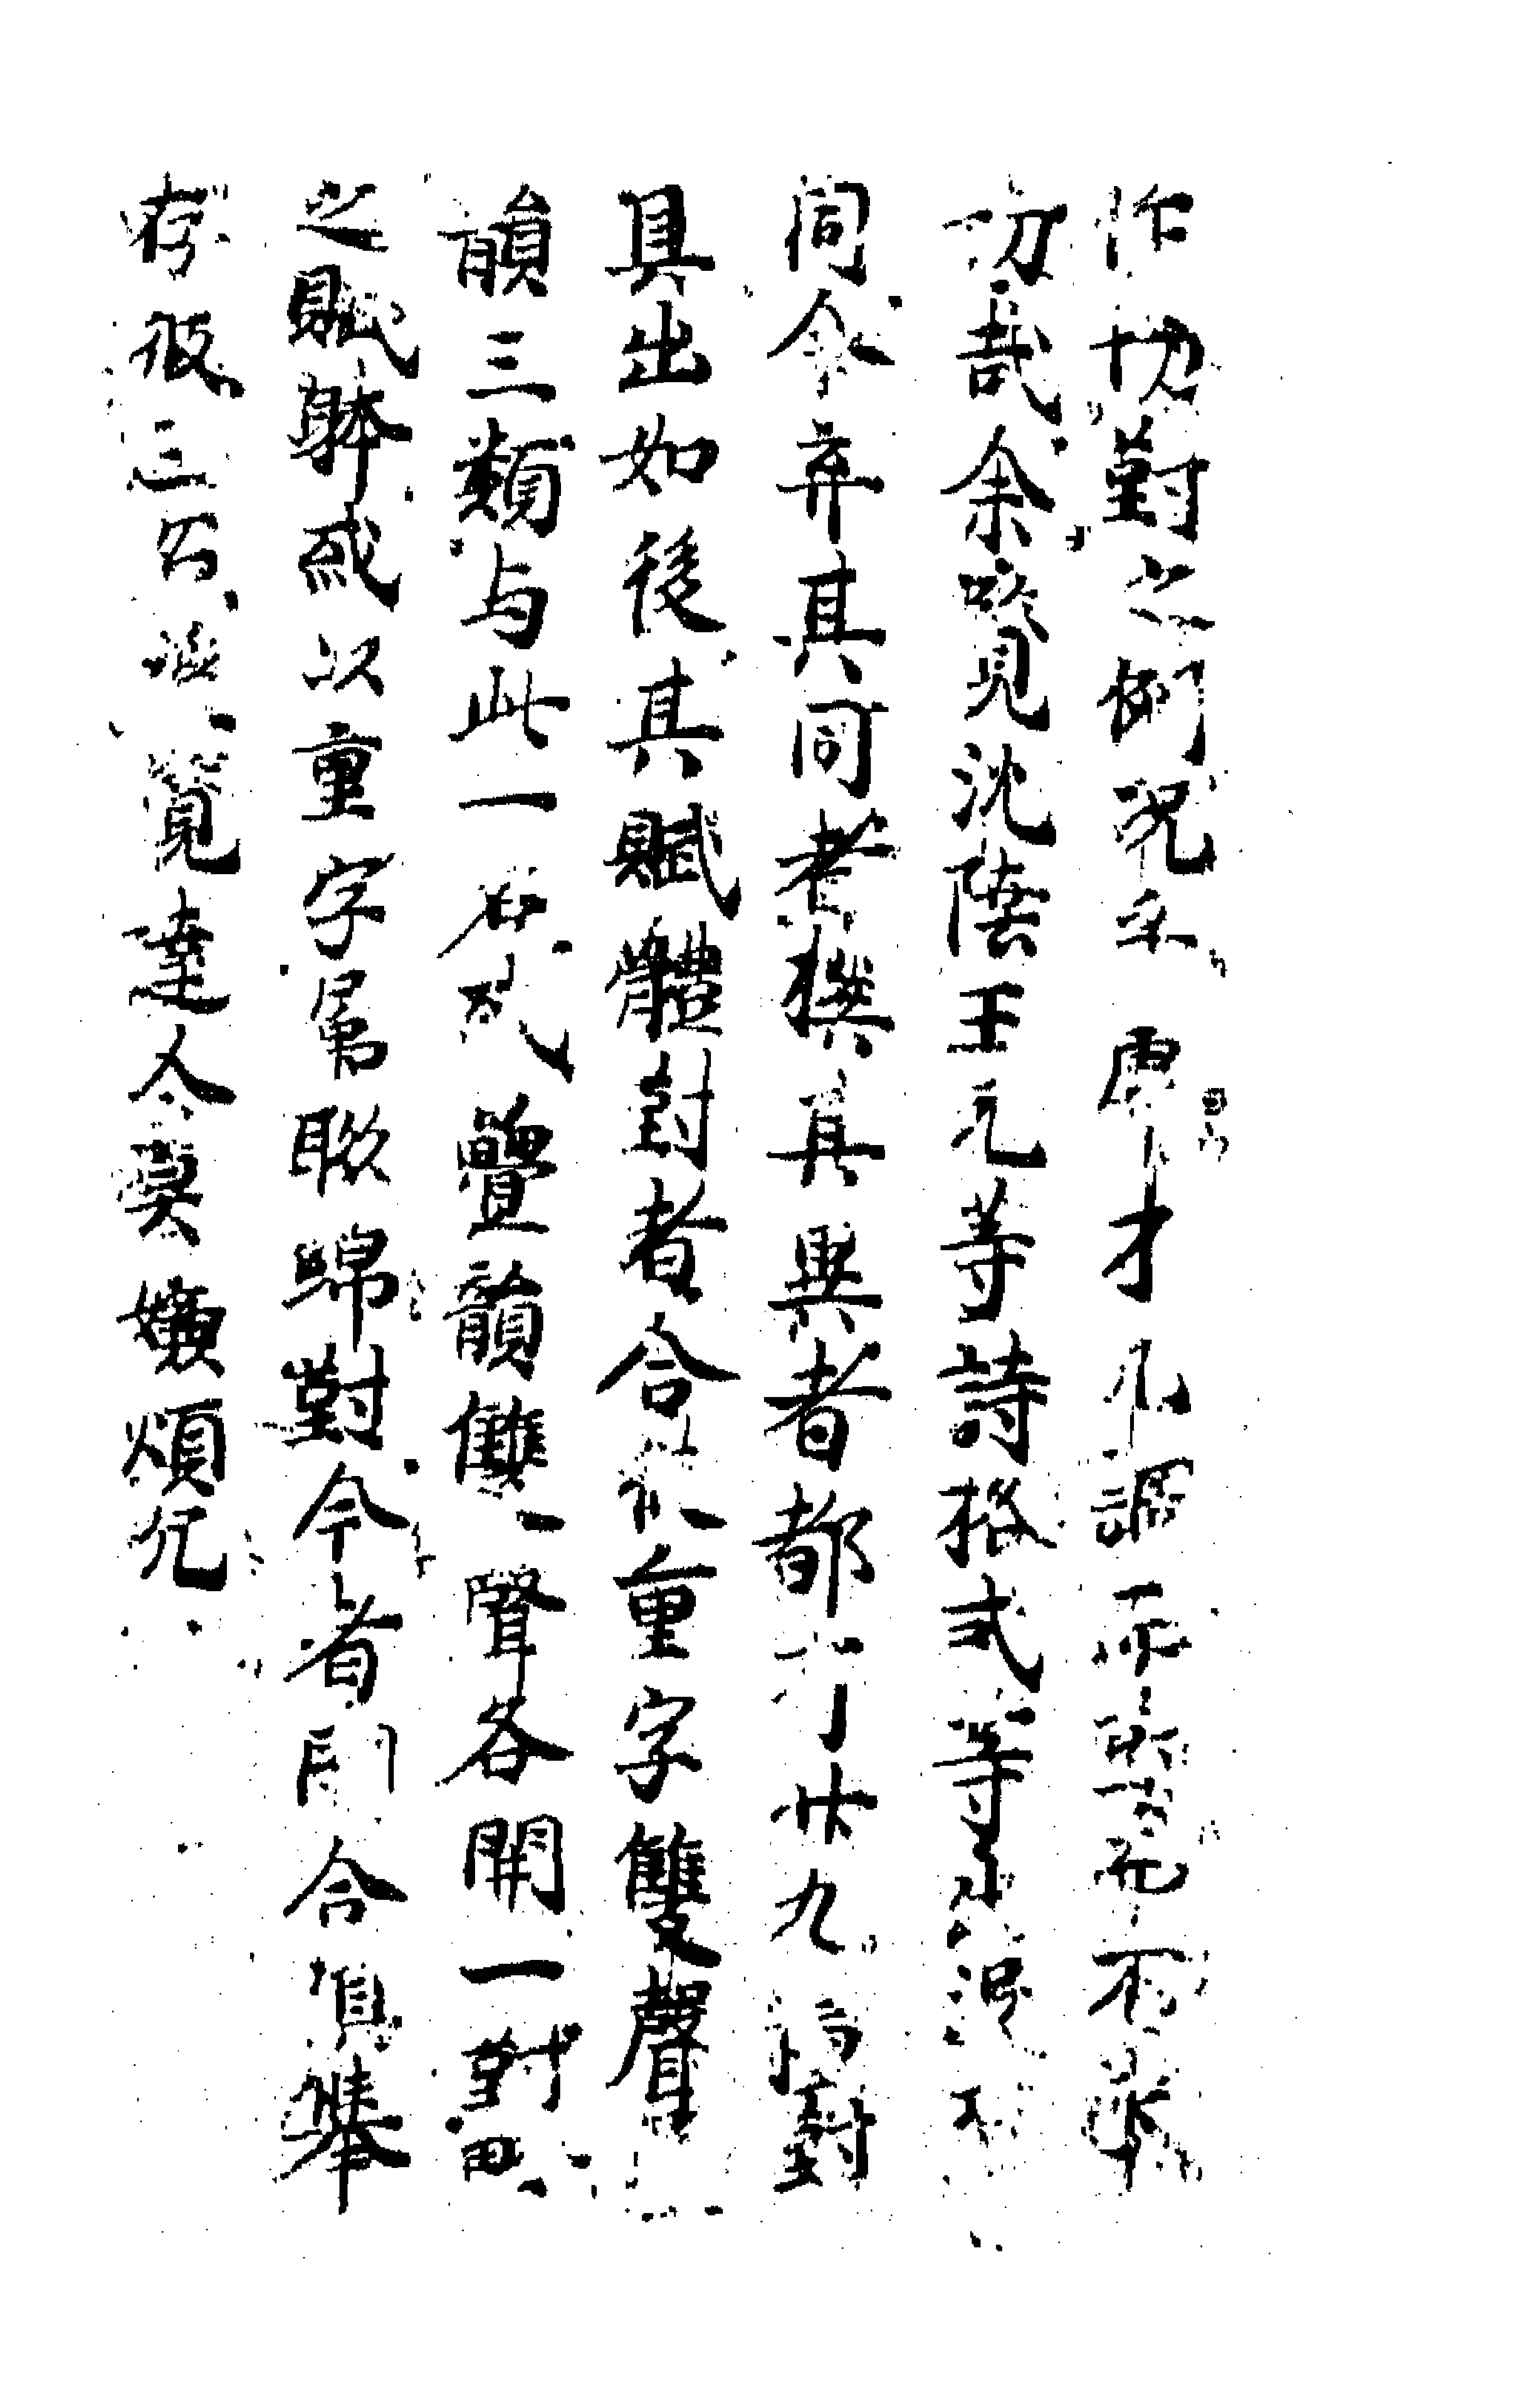 作切對之例況乎庸才凡調而對而不求
切哉余覽沈陸王元等詩格式等出沒不
同今弃其同者撰其異者都有廿九種對
具出如後其賦體對者合彼重字雙聲
韻三類与此一名或疊韻雙聲各開一對略
之賦躰或以重字属聯綿對今者開合俱舉
存彼三名後覽達人莫嫌煩冗